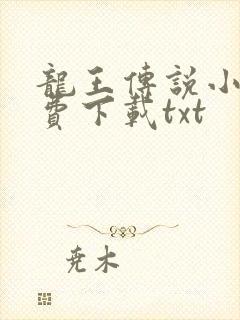 龍王傳説小
費下載txt
尭木